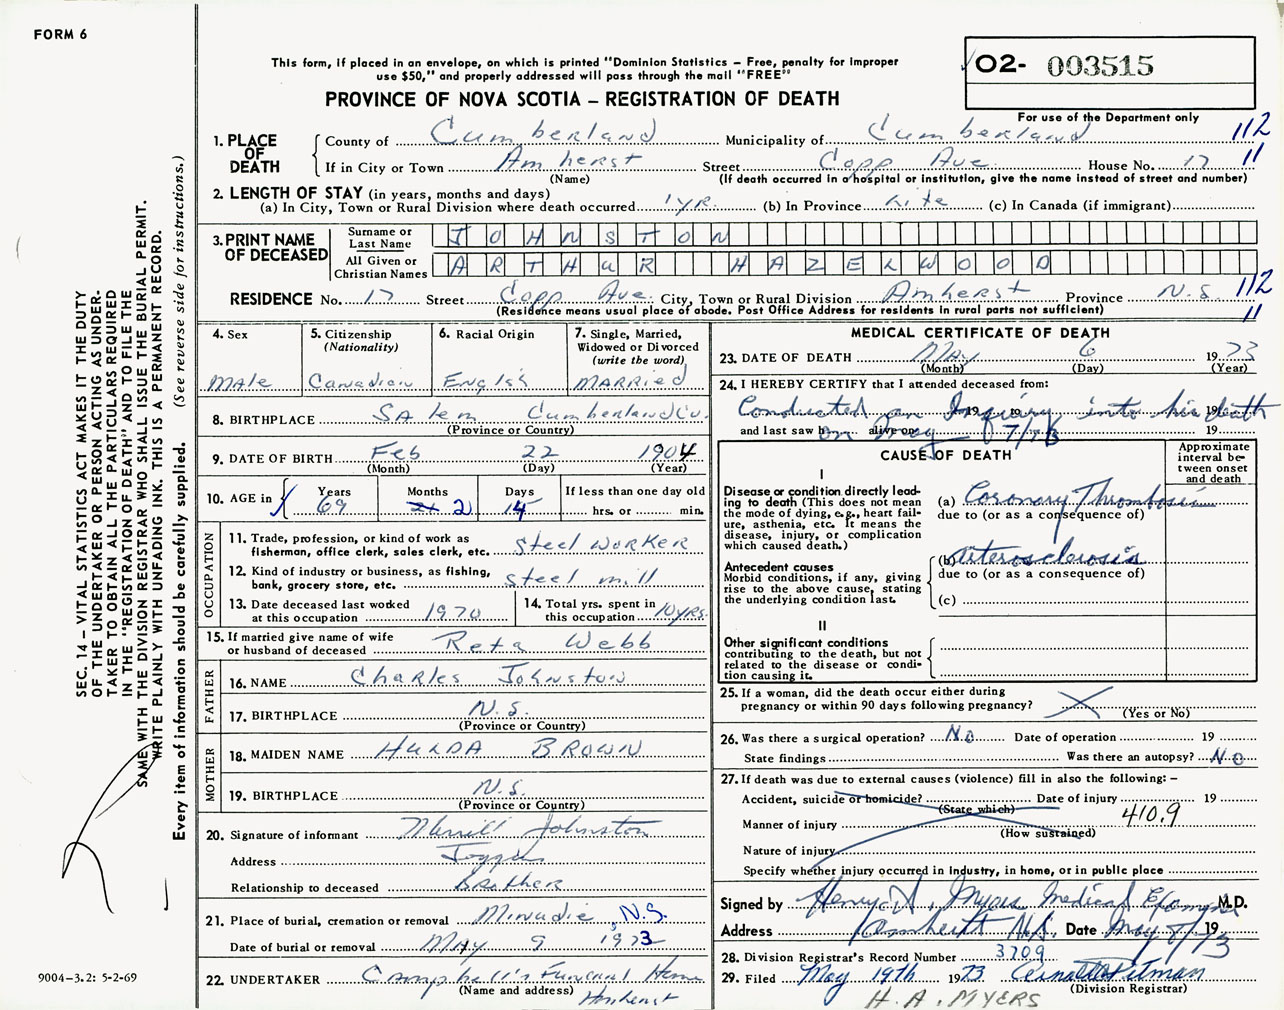 FORM 6
This form, if placed in an envelope, on which is printed "Dominion Statistics – Free, penalty for improper
use $50," and properly addressed will pass through the mail "FREE"
PROVINCE OF NOVA SCOTIA – REGISTRATION OF DEATH
02- 003515
For use of the Department only
1. PLACE OF DEATH
County of Cumberland Municipality of Cumberland 112
If in City or Town Amherst Street Copp Ave House No. 17 11
(Name) (If death occurred in a hospital or institution, give the name instead of street and number)
2. LENGTH OF STAY (in years, months and days)
(a) In City, Town or Rural Division where death occurred 1 yr. (b) In Province Life (c) In Canada (if immigrant)
3. PRINT NAME OF DECEASED
Surname or Last Name JOHNSTON
All Given or Christian Names ARTHUR HAZELWOOD
RESIDENCE No. 17 Street Copp Ave. City, Town or Rural Division Amherst Province N.S. 112
(Residence means usual place of abode. Post Office Address for residents in rural parts not sufficient) 11
4. Sex
Male
5. Citizenship
(Nationality)
Canadian
6. Racial Origin
English
7. Single, Married,
Widowed or Divorced
(write the word)
MARRIED
8. BIRTHPLACE Salem Cumberland Co.
(Province or Country)
9. DATE OF BIRTH Feb 22 1904
(Month) (Day) (Year)
10. AGE in
Years 69
Months 2
Days 14
If less than one day old
hrs. or min.
OCCUPATION
11. Trade, profession, or kind of work as
fisherman, office clerk, sales clerk, etc. Steel Worker
12. Kind of industry or business, as fishing,
bank, grocery store, etc. Steel mill
13. Date deceased last worked
at this occupation 1970
14. Total yrs. spent in
this occupation 10 yrs.
15. If married give name of wife
or husband of deceased Reta Webb
FATHER
16. NAME Charles Johnston
17. BIRTHPLACE N.S.
(Province or Country)
MOTHER
18. MAIDEN NAME HULDA BROWN
19. BIRTHPLACE N.S.
(Province or Country)
20. Signature of informant Merrill Johnston
Address Joggins
Relationship to deceased Brother
21. Place of burial, cremation or removal Minudie, N.S.
Date of burial or removal May 9 1973
22. UNDERTAKER Campbell's Funeral Home
(Name and address) Amherst
MEDICAL CERTIFICATE OF DEATH
23. DATE OF DEATH May 6 1973
(Month) (Day) (Year)
24. I HEREBY CERTIFY that I attended deceased from:
Conducted an Inquiry into his death 19 to 19
and last saw h alive on on May 7/73 19
CAUSE OF DEATH
Approximate
interval be-
tween onset
and death
I
Disease or condition directly lead-
ing to death (This does not mean
the mode of dying, e.g., heart fail-
ure, asthenia, etc. It means the
disease, injury, or complication
which caused death.)
(a) Coronary Thrombosis
due to (or as a consequence of)
Antecedent causes
Morbid conditions, if any, giving
rise to the above cause, stating
the underlying condition last.
(b) Arterosclerosis
due to (or as a consequence of)
(c)
II
Other significant conditions
contributing to the death, but not
related to the disease or condi-
tion causing it.
25. If a woman, did the death occur either during
pregnancy or within 90 days following pregnancy?
(Yes or No)
26. Was there a surgical operation? No Date of operation 19
State findings Was there an autopsy? No
27. If death was due to external causes (violence) fill in also the following: –
Accident, suicide or homicide? Date of injury 19
(State which)
Manner of injury 410.9
(How sustained)
Nature of injury
Specify whether injury occurred in industry, in home, or in public place
Signed by Henry A. Myers Medical Examiner M.D.
Address Amherst N.S. Date May 8/73 19
28. Division Registrar's Record Number 3709
29. Filed May 19th 1973 Pitman
(Division Registrar)
H. A. MYERS
SEC. 14 – VITAL STATISTICS ACT MAKES IT THE DUTY
OF THE UNDERTAKER OR PERSON ACTING AS UNDER-
TAKER TO OBTAIN ALL THE PARTICULARS REQUIRED
IN THE "REGISTRATION OF DEATH" AND TO FILE THE
SAME WITH THE DIVISION REGISTRAR WHO SHALL ISSUE THE BURIAL PERMIT.
WRITE PLAINLY WITH UNFADING INK. THIS IS A PERMANENT RECORD.
Every item of information should be carefully supplied. (See reverse side for instructions.)
9004-3.2: 5-2-69